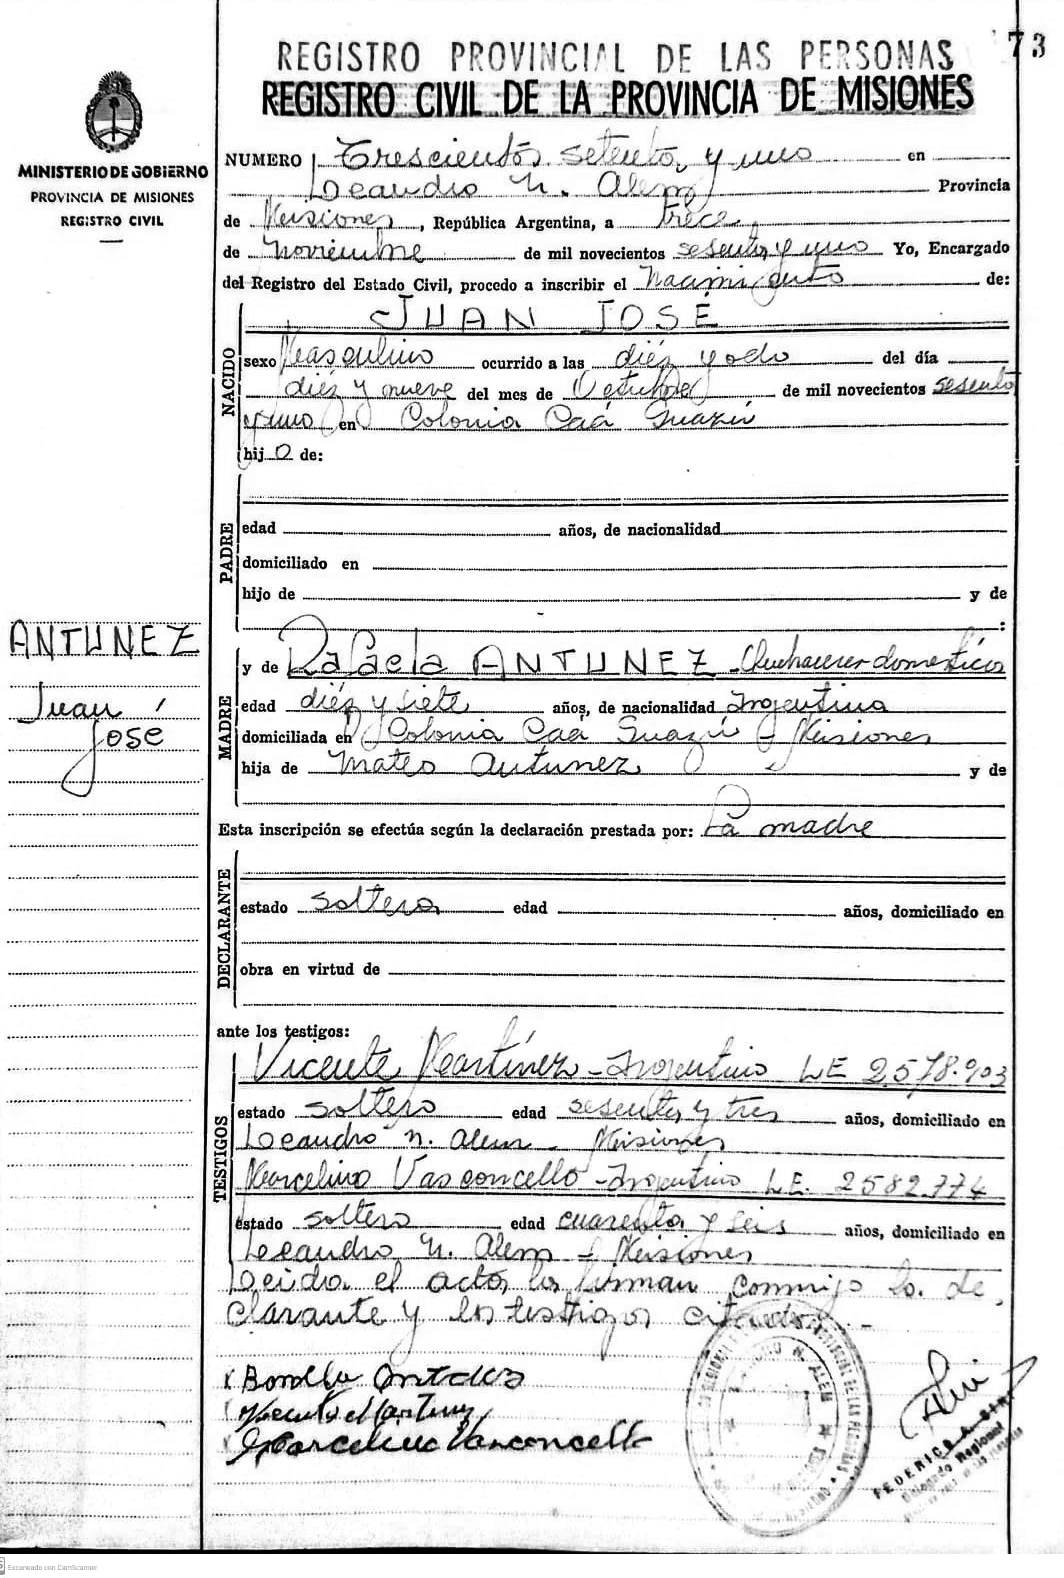 73
REGISTRO PROVINCIAL DE LAS PERSONAS
REGISTRO CIVIL DE LA PROVINCIA DE MISIONES
MINISTERIO DE GOBIERNO
PROVINCIA DE MISIONES
REGISTRO CIVIL
NUMERO Trescientos setenta y uno en
Leandro N. Alem Provincia
de Misiones, República Argentina, a trece
de noviembre de mil novecientos sesenta y uno Yo, Encargado
del Registro del Estado Civil, procedo a inscribir el Nacimiento de:
NACIDO
JUAN JOSÉ
sexo Masculino ocurrido a las diéz y ocho del día
diéz y nueve del mes de Octubre de mil novecientos sesenta
y uno en Colonia Caá Guazú
hijo de:
PADRE
edad años, de nacionalidad
domiciliado en
hijo de y de
:
ANTUNEZ
Juan
José
MADRE
y de Rafaela ANTUNEZ - Quehaceres domésticos
edad diéz y siete años, de nacionalidad Argentina
domiciliada en Colonia Caá Guazú - Misiones
hija de Mateo Antunez y de
Esta inscripción se efectúa según la declaración prestada por: La madre
DECLARANTE
estado soltera edad años, domiciliado en
obra en virtud de
ante los testigos:
TESTIGOS
Vicente Martínez - Argentino LE 2.578.903
estado soltero edad sesenta y tres años, domiciliado en
Leandro N. Alem - Misiones
Marcelino Vasconcello - Argentino L.E. 2582.774
estado soltero edad cuarenta y seis años, domiciliado en
Leandro N. Alem - Misiones
Leida el acta, la firman conmigo la de
clarante y los testigos citados.-
Vicente Martinez
Marcelino Vasconcello
LEANDRO N. ALEM
FEDERICO A.
Delegado Regional
Escaneado con CamScanner